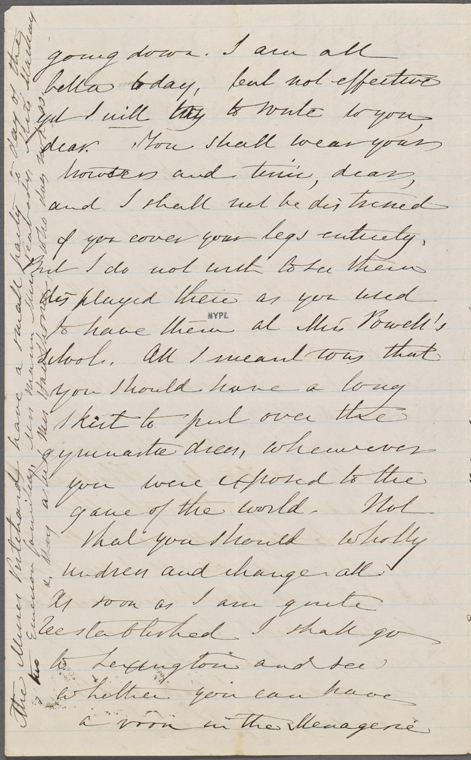 going down. I am all
better today, but not effective
yet I will try to write to you,
dear. You shall wear your
trowsers and tunic, dear,
and I shall not be distressed
if you cover your legs entirely.
But I do not wish to see them
displayed there as you used
to have them at Miss Powell's
school. All I meant was that
you should have a long
skirt to put over the
gymnastic dress, whenever
you were exposed to the
gaze of the world. Not
that you should wholly
undress and change all.
As soon as I am quite
reestablished I shall go
to Lexington and see
whether you can have
a room in the Menagerie
NYPL
The Misses Pritchard have a small party to day of the
Emerson family,